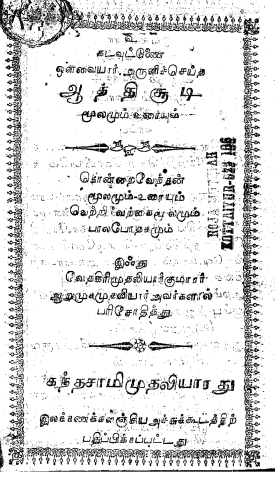 உ
கடவுட்டுணை
ஒளவையார் அருளிச்செய்த
ஆத்திசூடி
மூலமும் உரையும்
கொன்றைவேந்தன்
மூலமும்-உரையும்
வெற்றிவேற்கைமூலமும்
பாலபோதகமும்
இஃது
வேதகிரிமுதலியார்குமாரர்
ஆறுமுகமுதலியார் அவர்களால்
பரிசோதித்து
கந்தசாமிமுதலியாரது
இலக்கணக்களஞ்சியஅச்சுக்கூடத்திற்
பதிப்பிக்கப்பட்டது